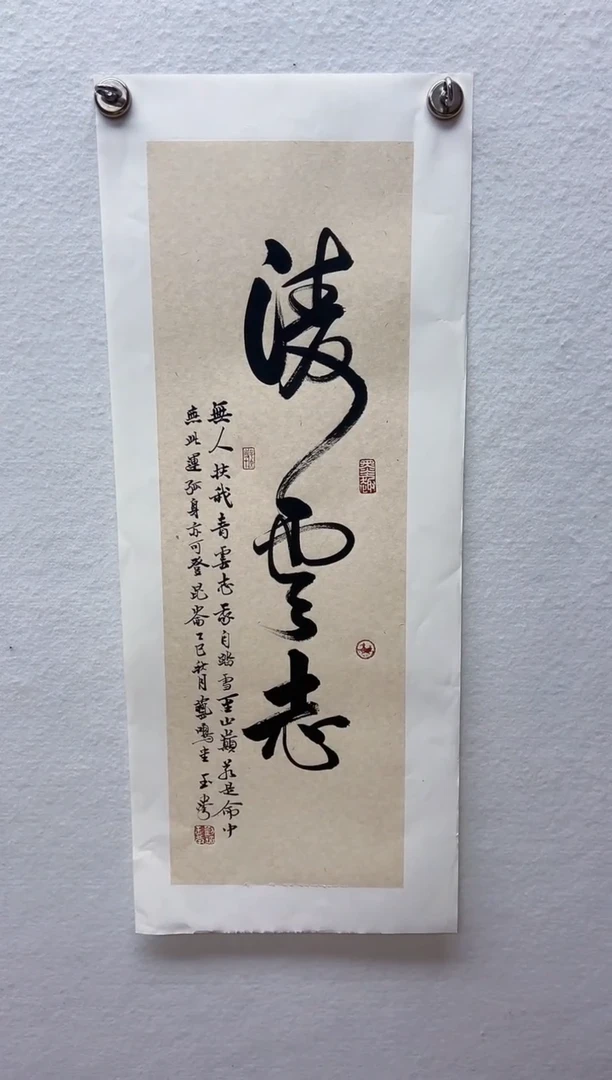 凌雲志
無人扶我青雲志我自踏雪至山巔若是命中
無此運孤身亦可登昆崙乙巳秋月藝鳴堂玉